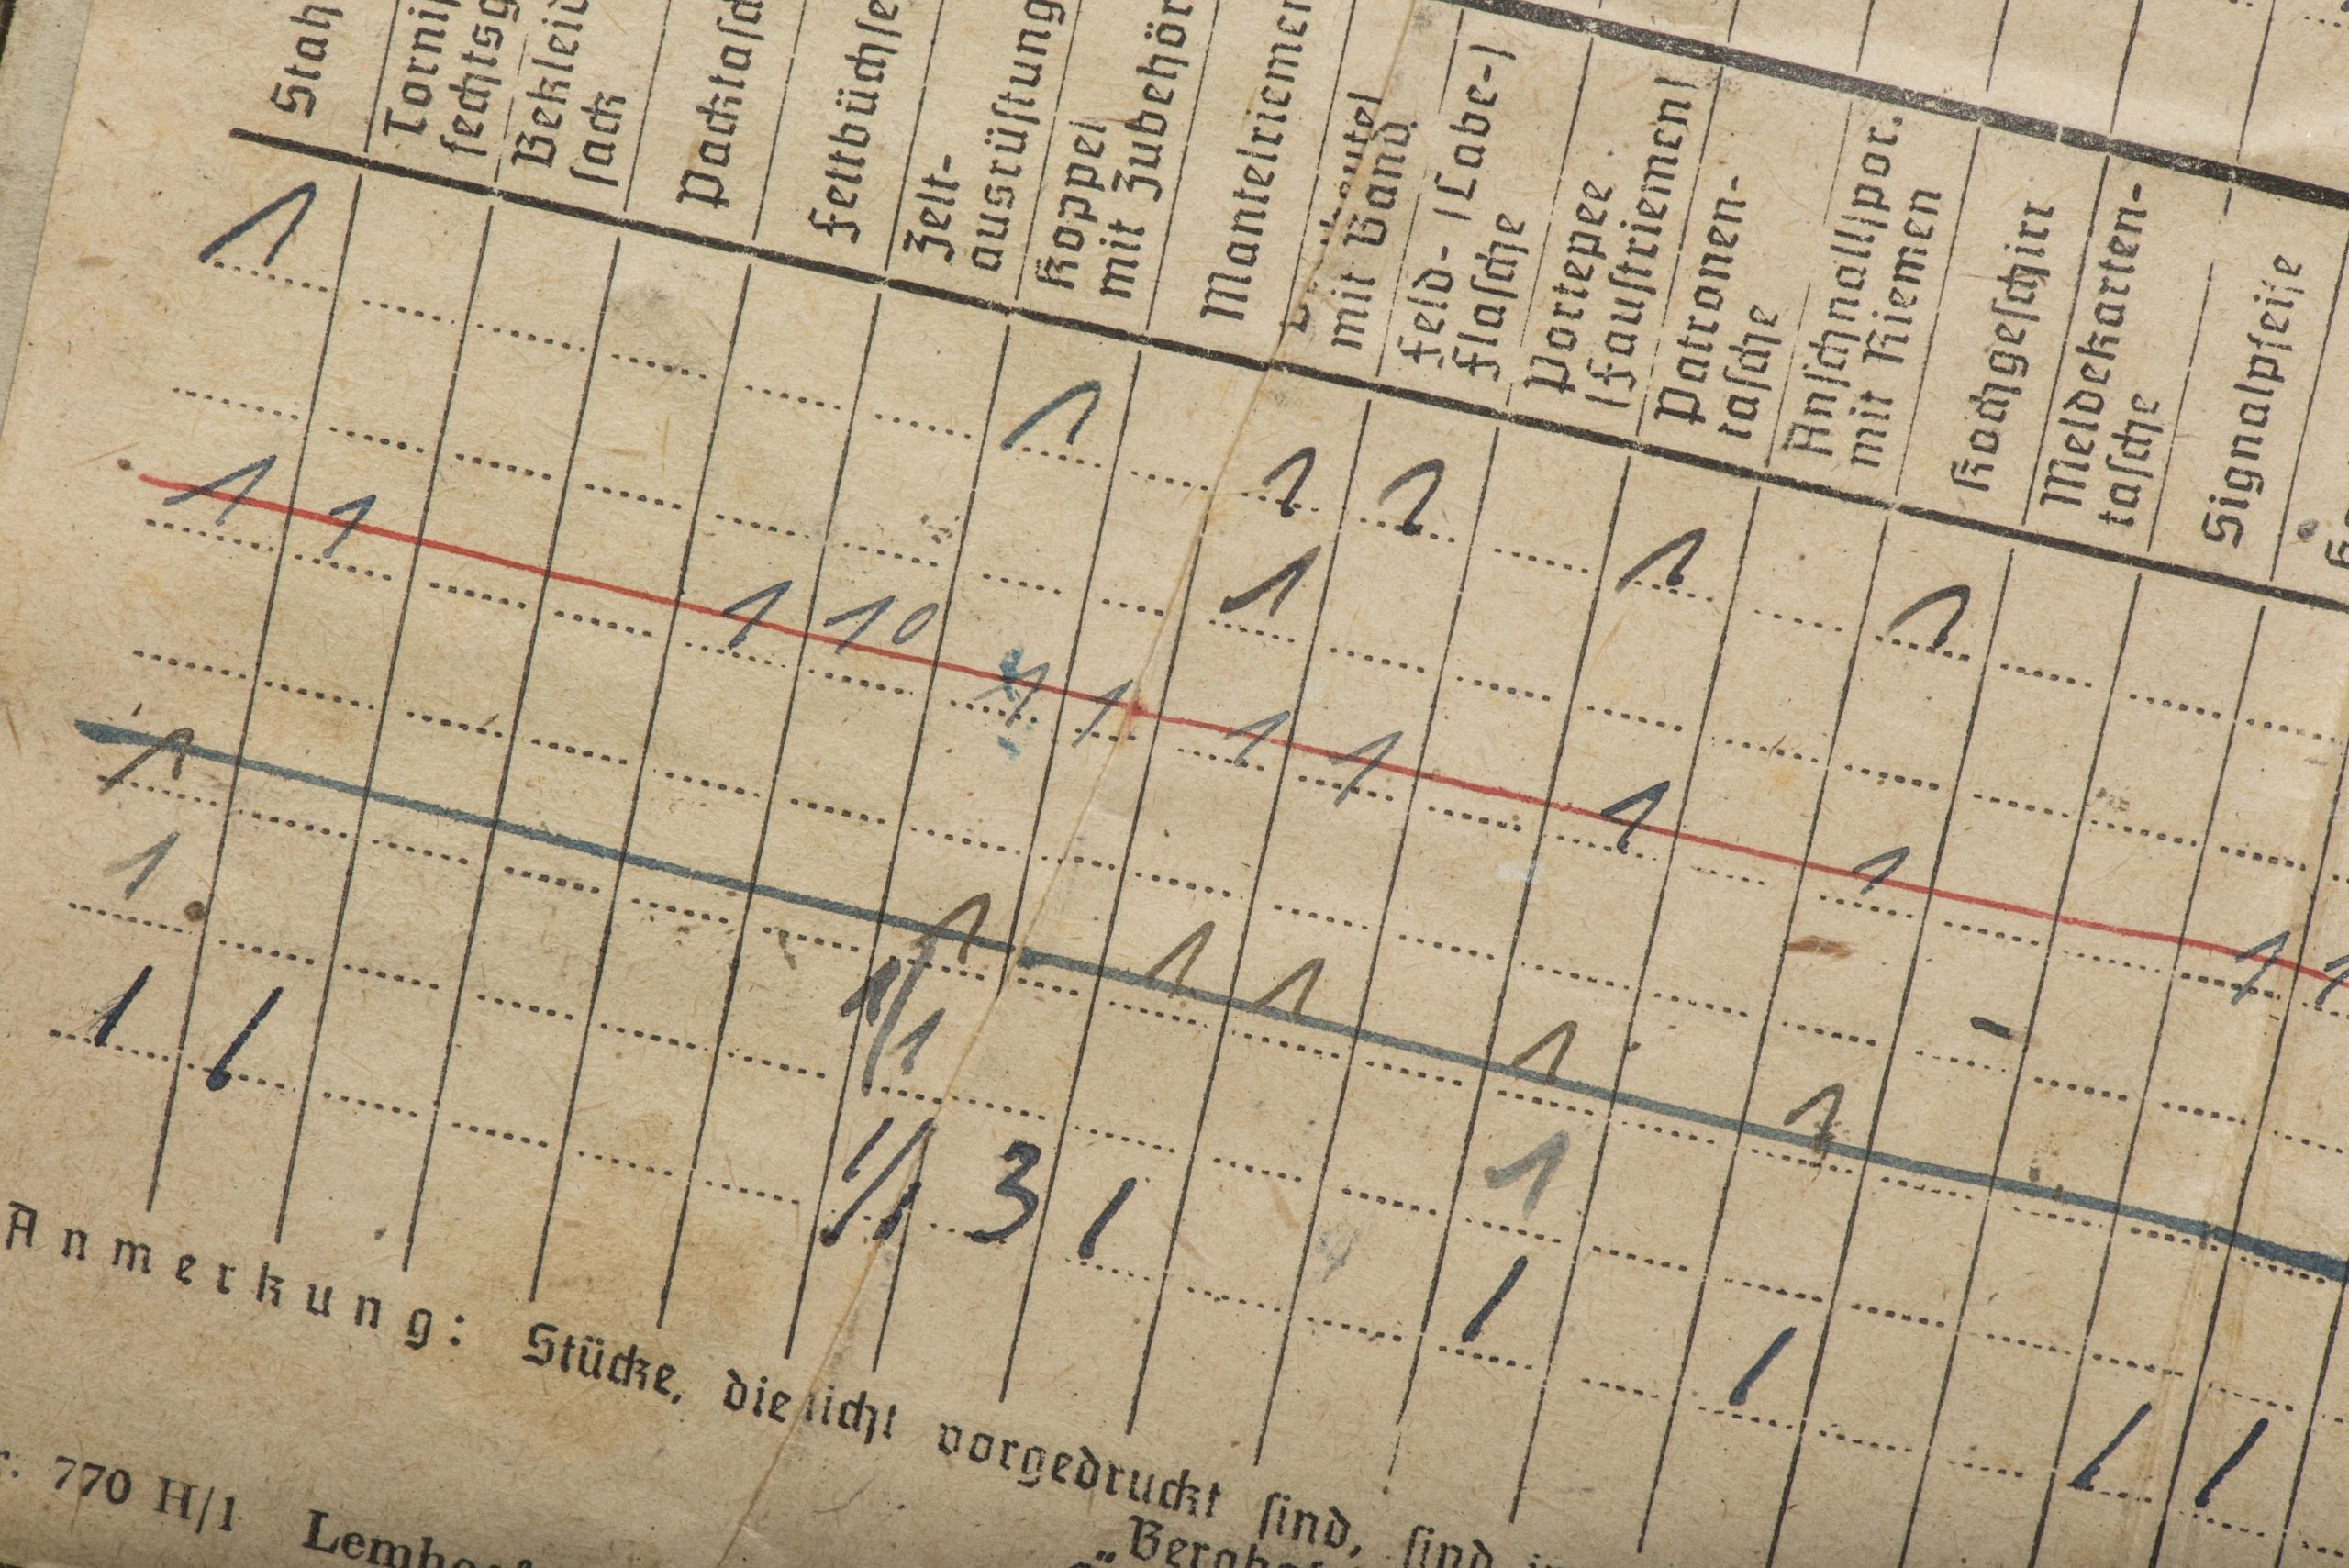 Stah
Torni
fechtsg
Bekleid
sack
Packtasc
Fettbüchse
Zelt-
ausrüstung
Koppel
mit Zubehör
Mantelriemen
mit Band
Feld- (Labe-)
Flasche
Portepee
(Faustriemen)
Patronen-
tasche
Anschnallspor.
mit Riemen
Kochgeschirr
Meldekarten-
tasche
Signalpfeife
1 1 1 1 1 1
1
1 1 1 10 1 1 1 1 1 1 1 1
1 1 1 1 1 1 -
1 1/1 1
1 1 1/1 3 1 1 1 1 1
Anmerkung: Stücke, die nicht vorgedruckt sind, sind
770 H/1